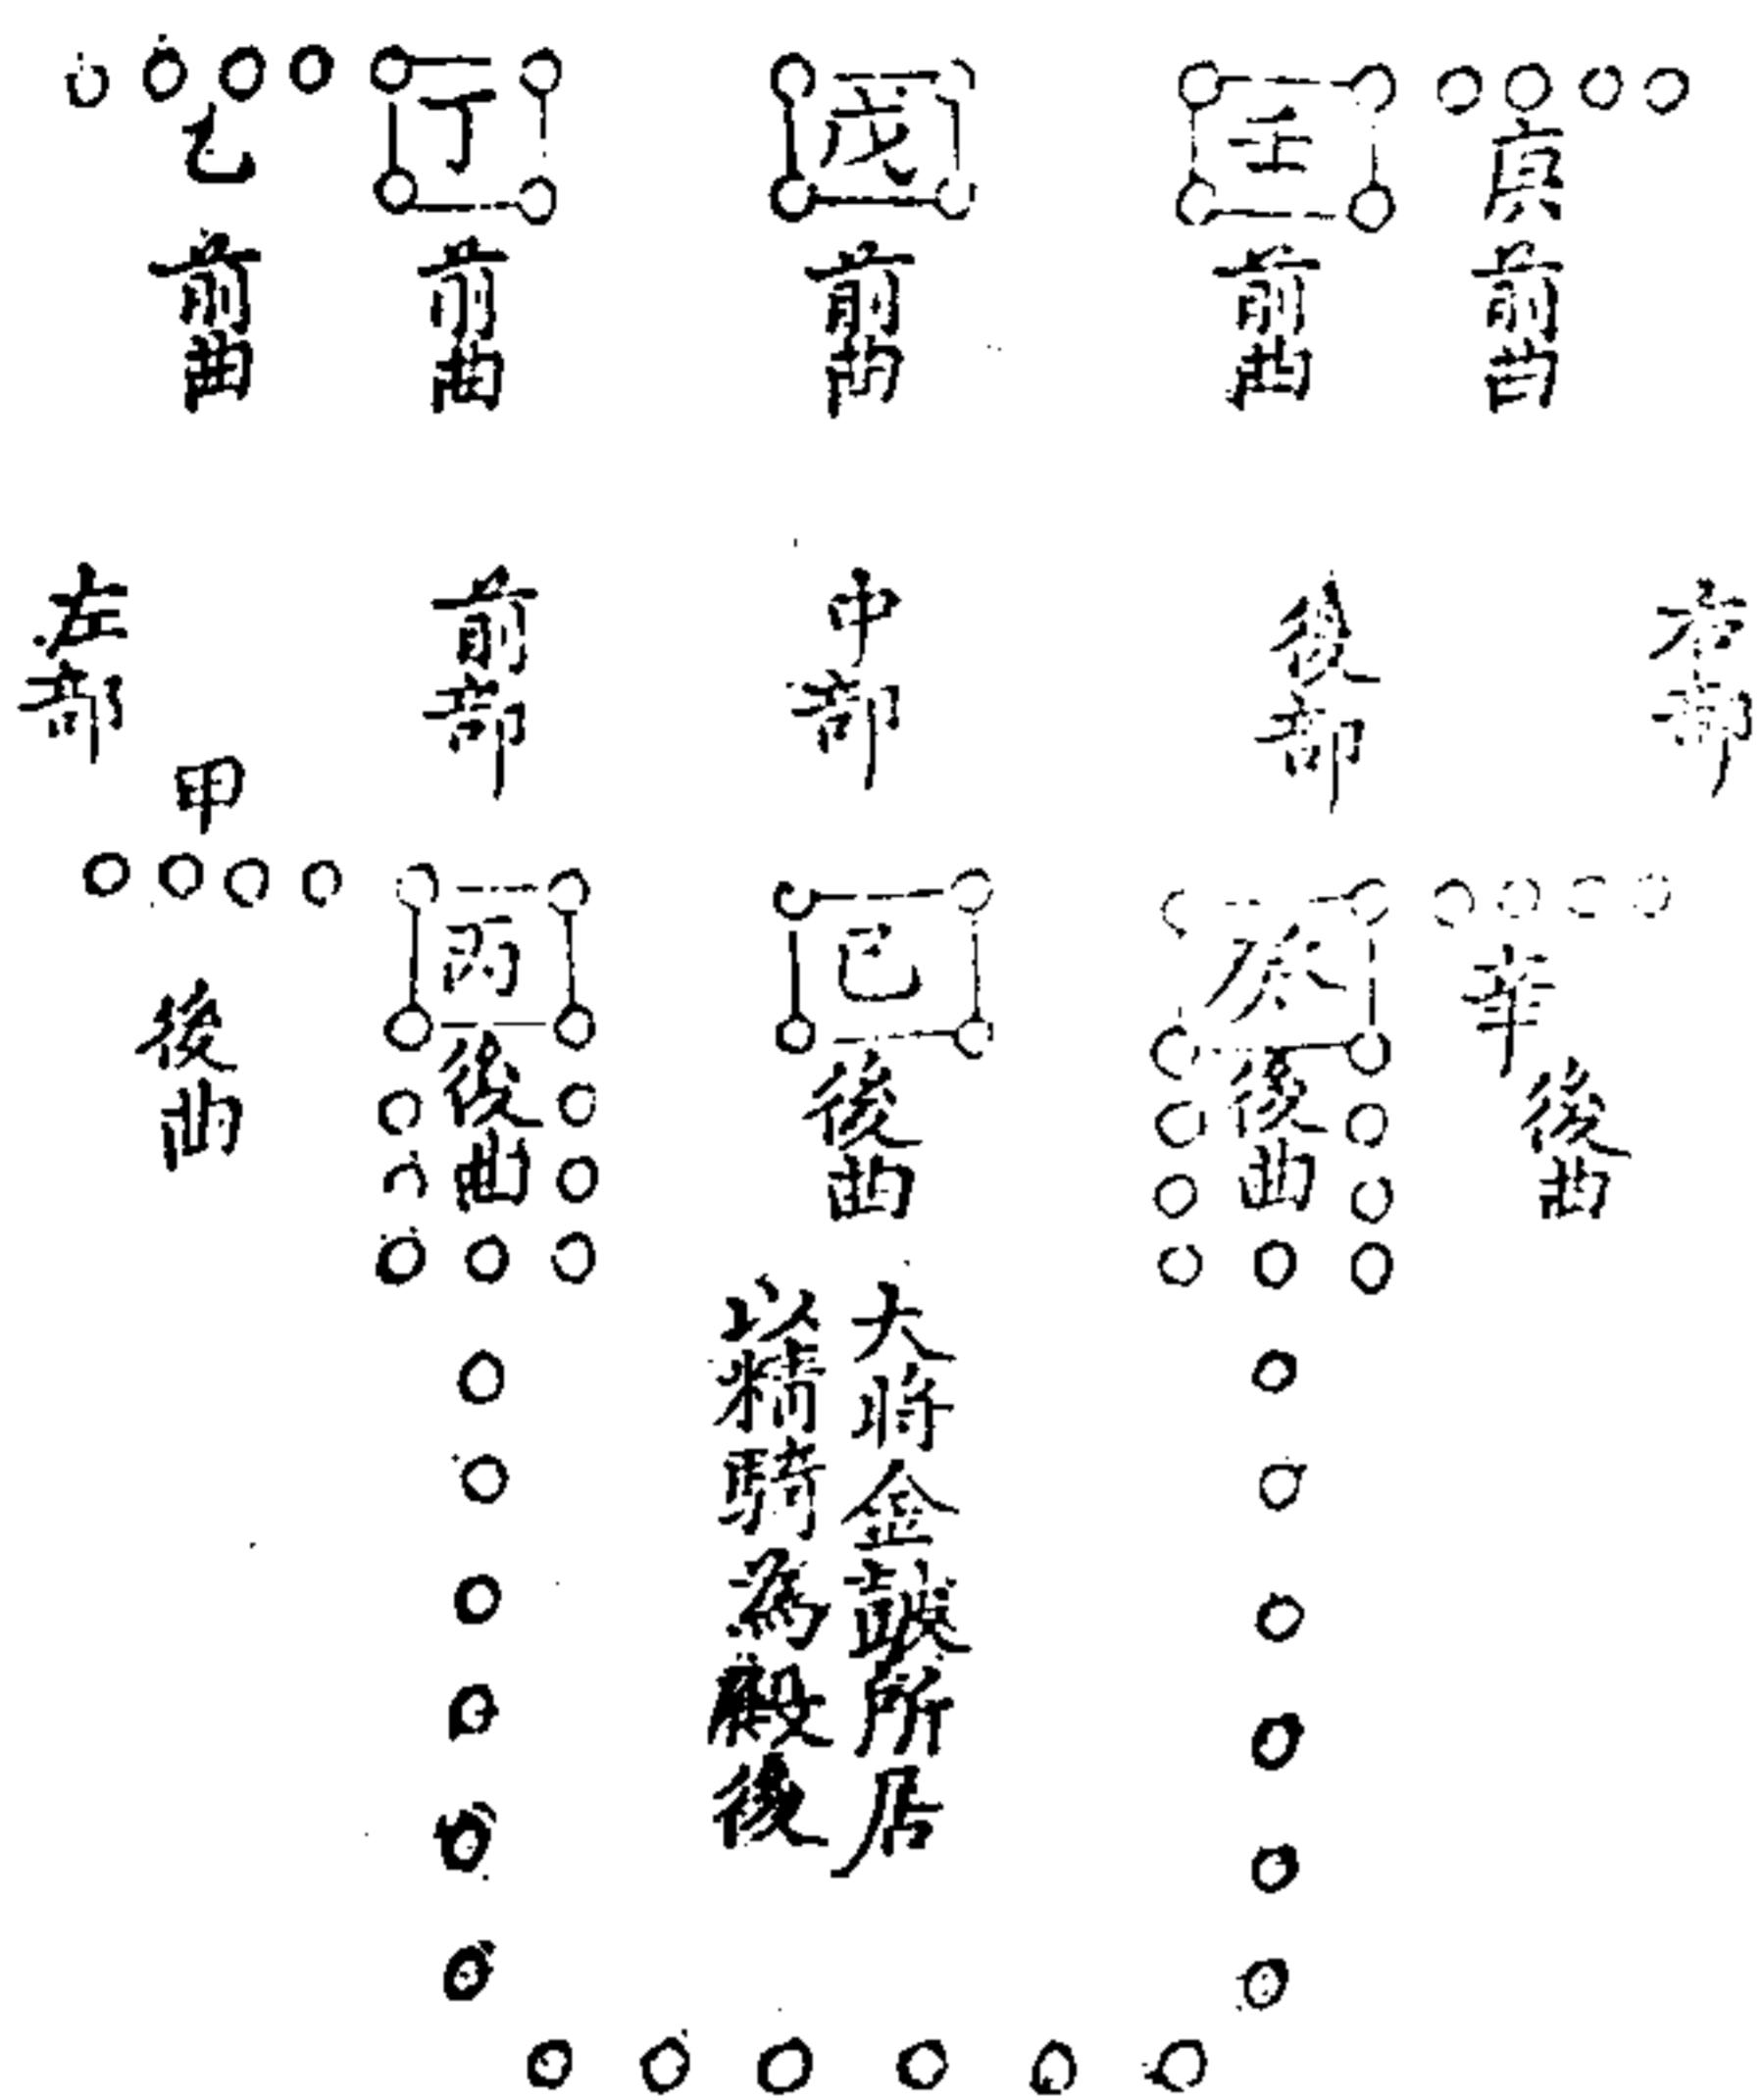 庚前曲
壬前曲
戊前曲
丁前曲
乙前曲
右部
後部
中部
前部
左部
辛後曲
癸後曲
己後曲
丙後曲
甲後曲
大将金皷所居
以精騎為殿後